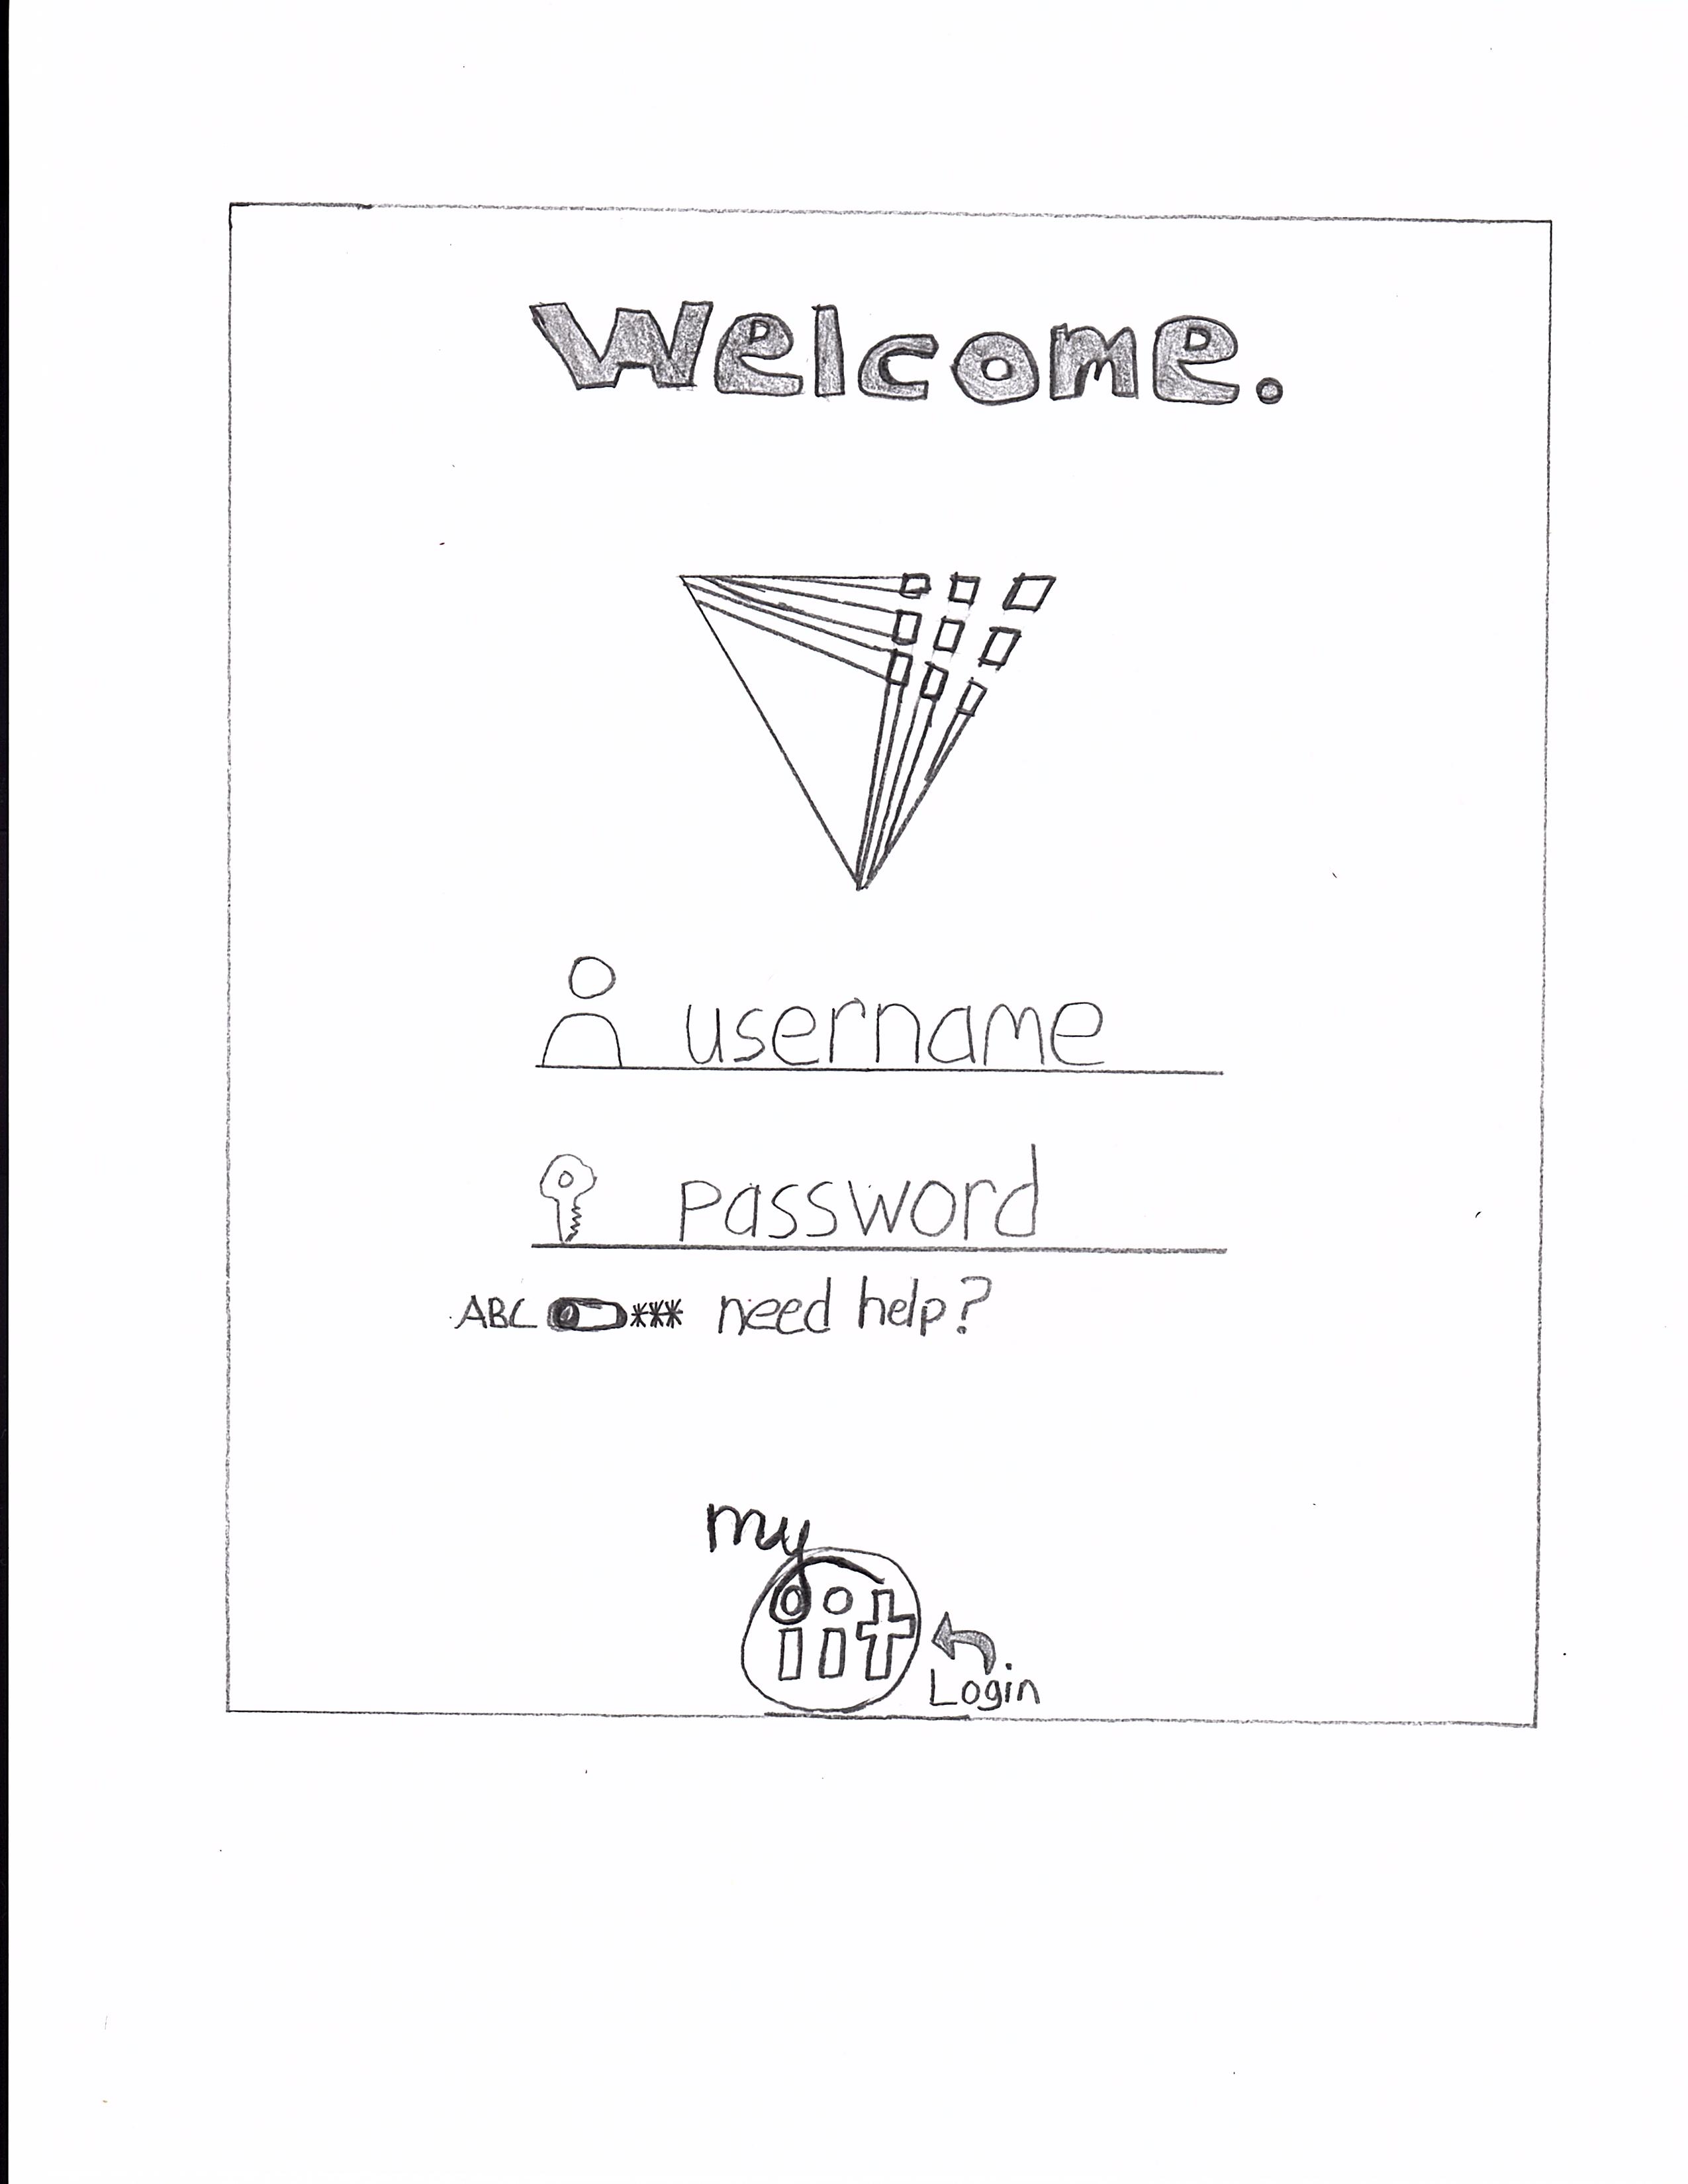 Welcome.
username
password
ABC *** need help?
my
iit
Login